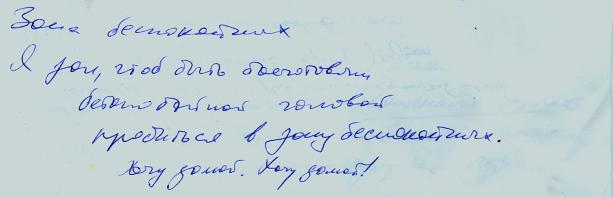 Зона беспокойных
Я зан, чтоб быть боеготовым,
бетонобойной головой
пробиться в зону беспокойных.
Хочу домой. Хочу домой!